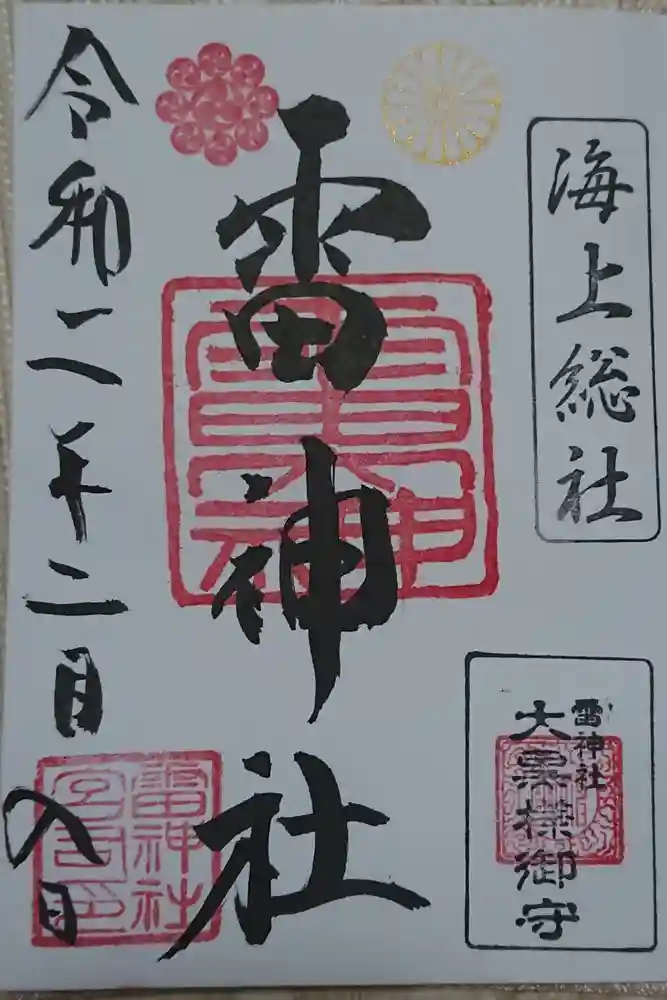 海上総社
雷神社
大黒様御守
雷神社
令和二年二月八日
雷神社
宮司印